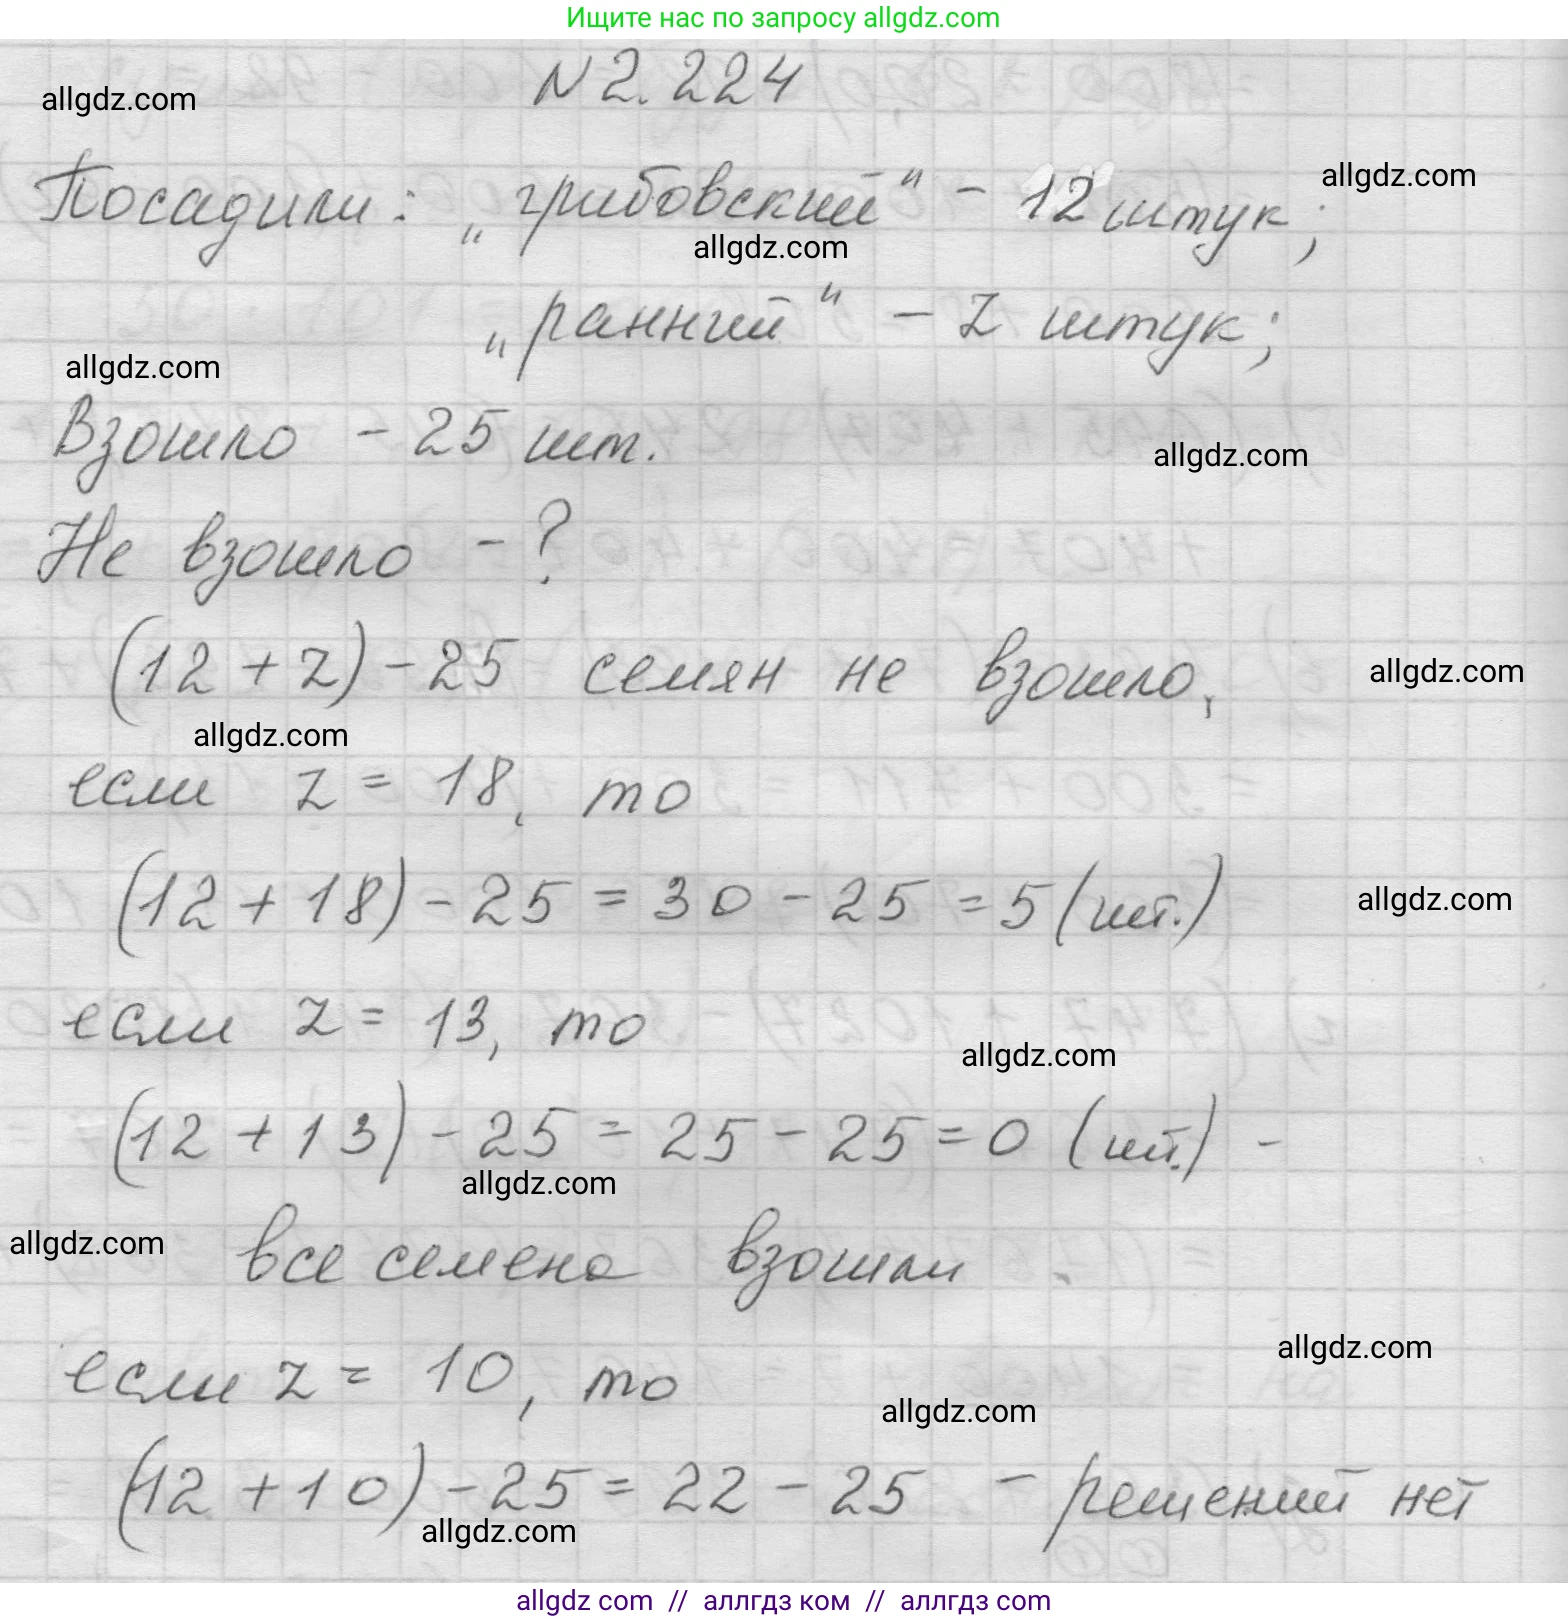 Ищите нас по запросу allgdz.com
N 2.224
allgdz.com
Посадили: „грибовский“ - 12 штук;
allgdz.com
allgdz.com
„ранний“ - z штук;
allgdz.com
Взошло - 25 шт.
allgdz.com
Не взошло - ?
(12 + z) - 25 семян не взошло,
allgdz.com
allgdz.com
если z = 18, то
(12 + 18) - 25 = 30 - 25 = 5 (шт.)
allgdz.com
если z = 13, то
allgdz.com
(12 + 13) - 25 = 25 - 25 = 0 (шт.) -
allgdz.com
allgdz.com
все семена взошли.
allgdz.com
если z = 10, то
allgdz.com
(12 + 10) - 25 = 22 - 25 - решений нет
allgdz.com
allgdz com // аллгдз ком // аллгдз com